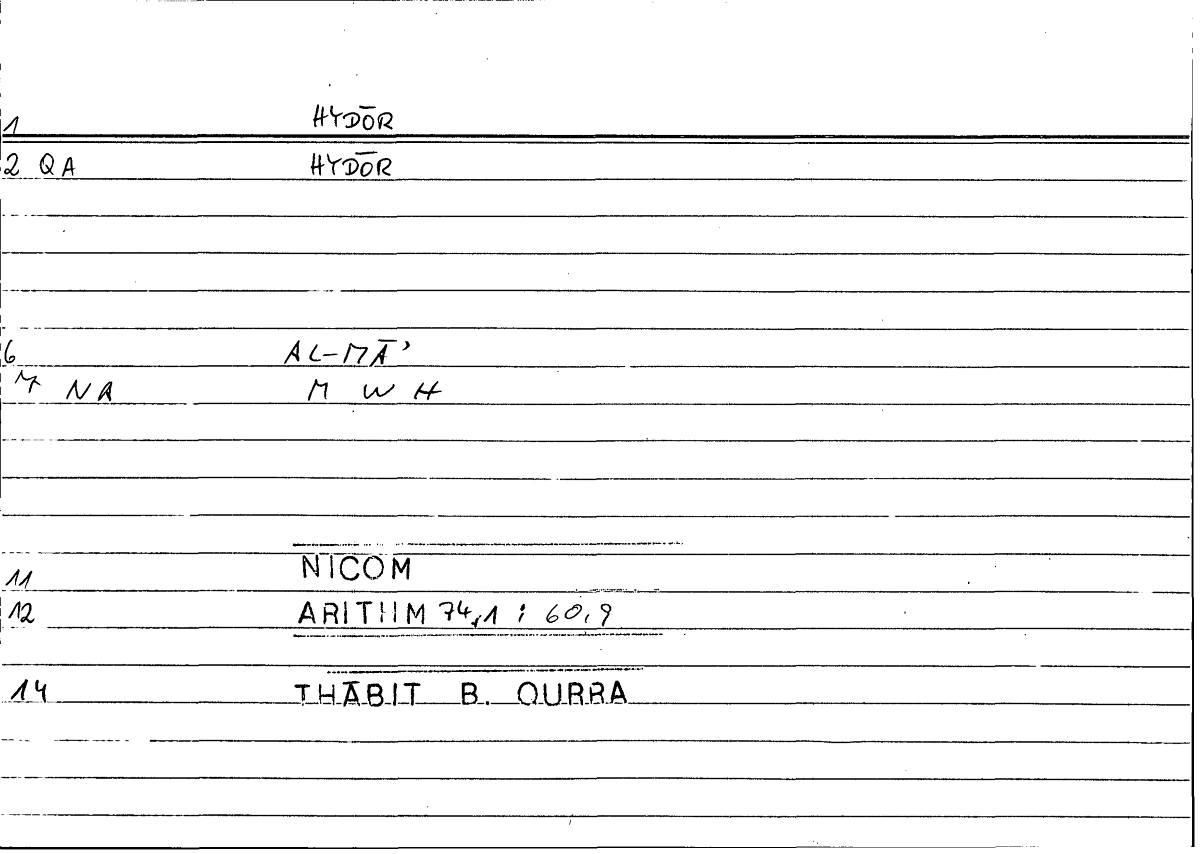 1 HYDŌR
2 QA HYDŌR
6 AL-MĀʾ
7 NA M W H
11 NICOM
12 ARITHM 74,1 : 60,9
14 THĀBIT B. QURRA